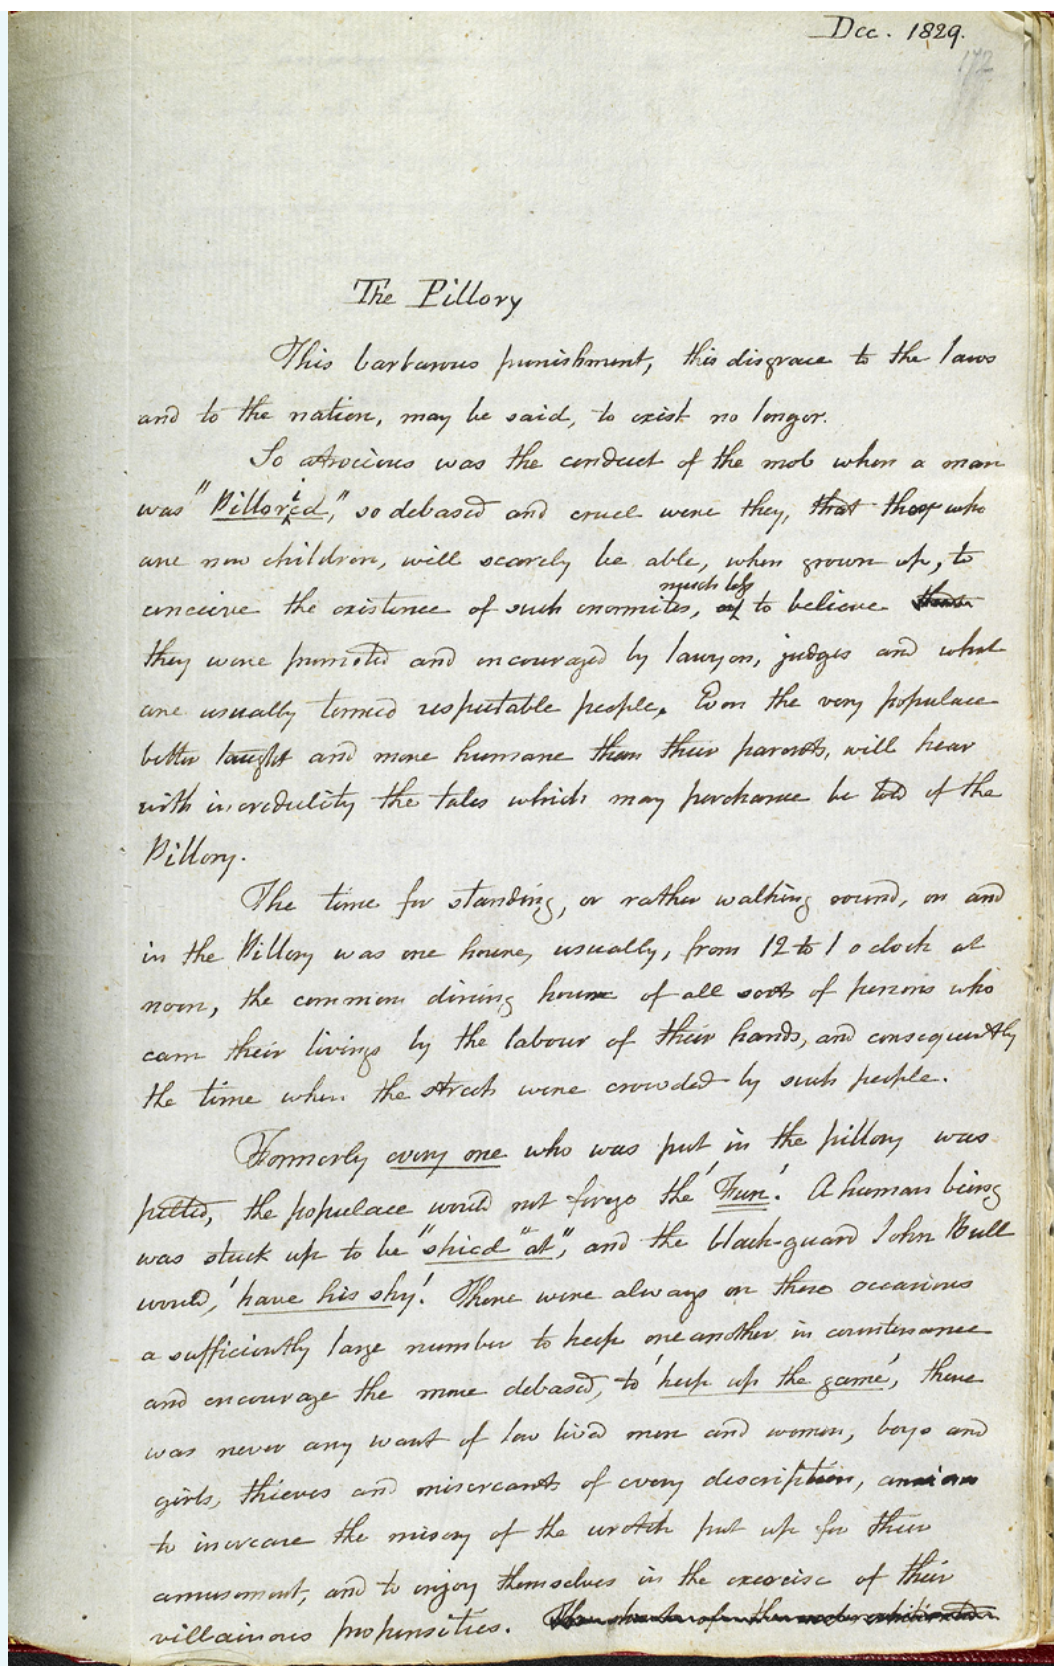 Dec. 1829.
172
The Pillory
This barbarous punishment, this disgrace to the laws
and to the nation, may be said, to exist no longer.
So atrocious was the conduct of the mob when a man
was "Pilloried," so debased and cruel were they, that they who
are now children, will scarcely be able, when grown up, to
much less
conceive the existence of such enormites, to believe
they were promoted and encouraged by lawyers, judges and what
are usually termed respectable people. Even the very populace
better taught and more humane than their parents, will hear
with incredulity the tales which may perchance be told of the
Pillory.
The time for standing, or rather walking round, on and
in the Pillory was one houre, usually, from 12 to 1 o clock at
noon, the common dining hour of all sorts of persons who
earn their livings by the labour of their hands, and consequently
the time when the streets were crowded by such people.
Formerly every one who was put in the pillory was
pelted, the populace would not forego the 'Fun'. A human being
was stuck up to be "shied "at", and the black-guard John Bull
would, 'have his shy'. There were always on these occasions
a sufficiently large number to keep one another in countenance
and encourage the more debased, to 'keep up the game', there
was never any want of low lived men and women, boys and
girls, thieves and miscreants of every description, anxious
to increase the misery of the wretch put up for their
amusement, and to enjoy themselves in the exercise of their
villainous propensities.